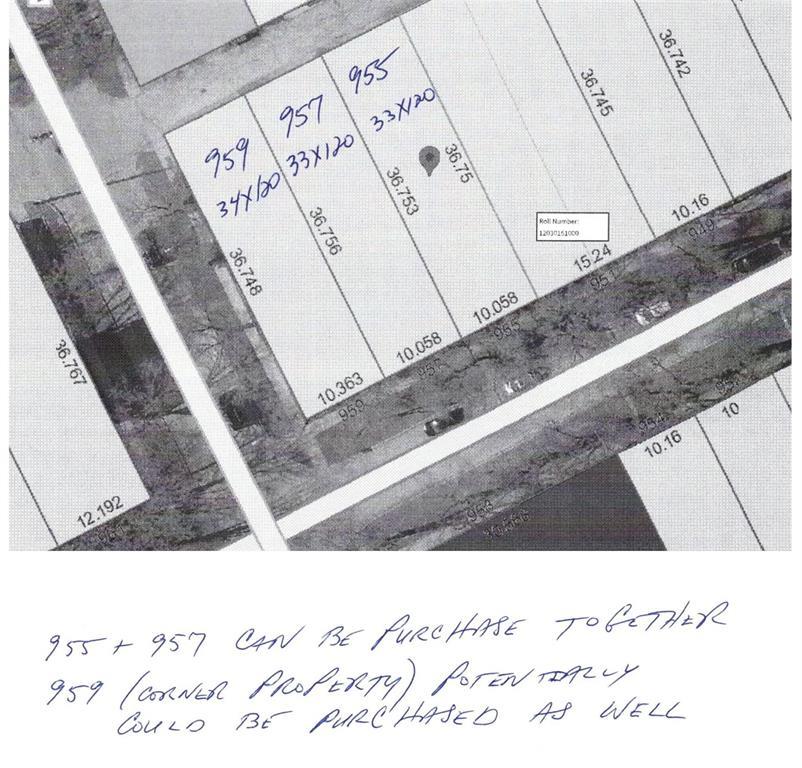 955
957
959
33X120
33X120
34X120
36.742
36.745
36.75
36.753
36.756
36.748
36.767
Roll Number:
12030161000
10.16
949
15.24
951
10.058
955
10.058
957
10.363
959
12.192
10.16
10
953
955 + 957 CAN BE PURCHASE TOGETHER
959 (CORNER PROPERTY) POTENTIALLY
COULD BE PURCHASED AS WELL